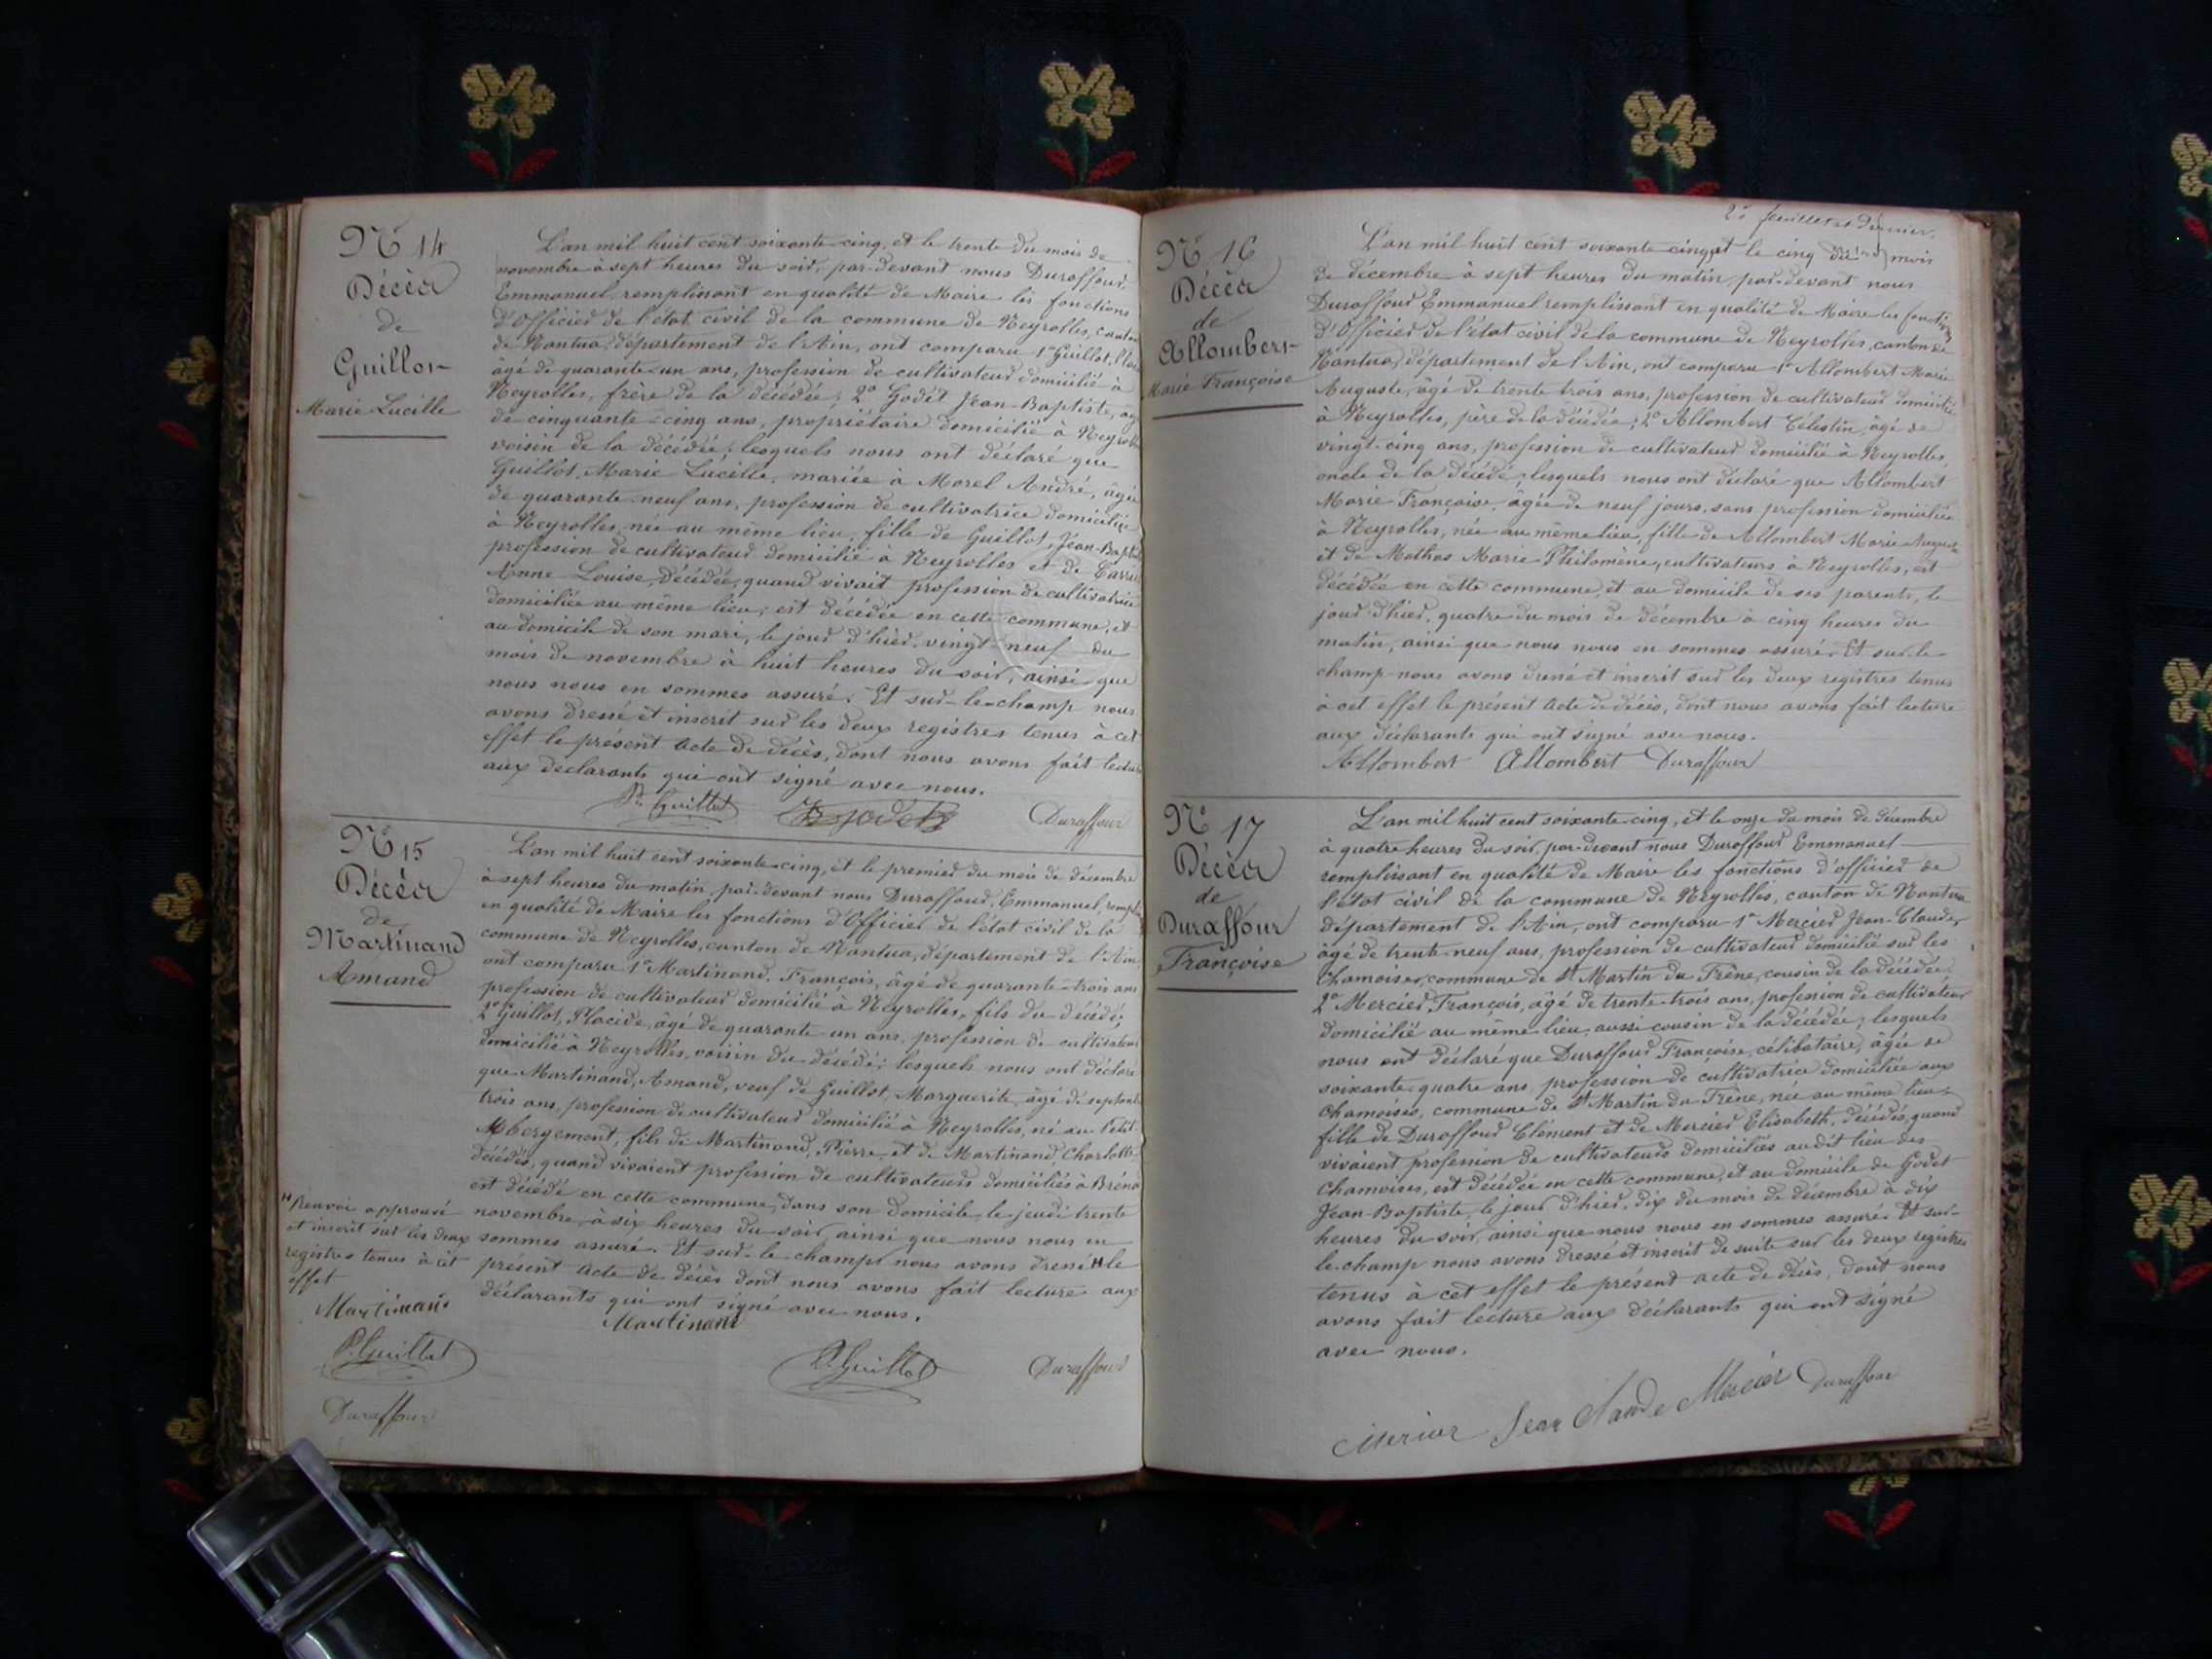 Nº 14
Décès
de
Guillot
Marie Lucille
L'an mil huit cent soixante-cinq, et le trente du mois de
novembre à sept heures du soir, par-devant nous Duraffour
Emmanuel, remplissant en qualité de Maire les fonctions
d'Officier de l'état civil de la commune de Neyrolles, canton
de Nantua, département de l'Ain, ont comparu 1º Guillot,
âgé de quarante-un ans, profession de cultivateur domicilié à
Neyrolles, frère de la décédée; 2º Godet Jean-Baptiste, âgé
de cinquante-cinq ans, propriétaire domicilié à Neyrolles
voisin de la décédée; lesquels nous ont déclaré que
Guillot, Marie Lucille, mariée à Morel André, âgée
de quarante-neuf ans, profession de cultivatrice domiciliée
à Neyrolles, née au même lieu, fille de Guillot, Jean-Baptiste
profession de cultivateur domicilié à Neyrolles et de
Anne Louise, décédée, quand vivait profession de cultivatrice
domiciliée au même lieu, est décédée en cette commune, et
au domicile de son mari, le jour d'hier, vingt-neuf du
mois de novembre à huit heures du soir, ainsi que
nous nous en sommes assuré. Et sur-le-champ nous
avons dressé et inscrit sur les deux registres tenus à cet
effet le présent acte de décès, dont nous avons fait lecture
aux déclarants qui ont signé avec nous.
Pe Guillot Godet Duraffour
Nº 15
Décès
de
Martinand
Amand
L'an mil huit cent soixante-cinq, et le premier du mois de décembre
à sept heures du matin, par-devant nous Duraffour, Emmanuel,
en qualité de Maire les fonctions d'Officier de l'état civil de la
commune de Neyrolles, canton de Nantua, département de l'Ain
ont comparu 1º Martinand, François, âgé de quarante-trois ans
profession de cultivateur domicilié à Neyrolles, fils du décédé;
2º Guillot, Placide, âgé de quarante un ans, profession de cultivateur
domicilié à Neyrolles, voisin du décédé; lesquels nous ont déclaré
que Martinand, Amand, veuf de Guillot, Marguerite, âgé de septante
trois ans, profession de cultivateur domicilié à Neyrolles, né au Petit-
Abergement, fils de Martinand, Pierre, et de Martinand, Charlotte
décédés, quand vivaient profession de cultivateurs domiciliés à Brénod
est décédé en cette commune, dans son domicile, le jeudi trente
novembre, à six heures du soir, ainsi que nous nous en
sommes assuré. Et sur-le-champ nous avons dressé H le
présent acte de décès dont nous avons fait lecture aux
déclarants qui ont signé avec nous.
H Renvoi approuvé
et inscrit sur les deux
registres tenus à cet
effet
Martinand Martinand
P. Guillot P. Guillot Duraffour
Duraffour
2e feuillet et dernier.
Nº 16
Décès
de
Allombert
Marie Françoise
L'an mil huit cent soixante-cinq et le cinq du mois
de décembre à sept heures du matin, par-devant nous
Duraffour Emmanuel remplissant en qualité de Maire les fonctions
d'Officier de l'état civil de la commune de Neyrolles, canton de
Nantua, département de l'Ain, ont comparu 1º Allombert Marie
Auguste, âgé de trente trois ans, profession de cultivateur domicilié
à Neyrolles, père de la décédée; 2º Allombert Célestin, âgé de
vingt-cinq ans, profession de cultivateur domicilié à Neyrolles,
oncle de la décédé; lesquels nous ont déclaré que Allombert
Marie Françoise, âgée de neuf jours, sans profession domiciliée
à Neyrolles, née au même lieu, fille de Allombert Marie Auguste
et de Mathas Marie-Philomène, cultivateurs à Neyrolles, est
décédée en cette commune, et au domicile de ses parents, le
jour d'hier, quatre du mois de décembre à cinq heures du
matin, ainsi que nous nous en sommes assuré. Et sur-le-
champ nous avons dressé et inscrit sur les deux registres tenus
à cet effet le présent acte de décès, dont nous avons fait lecture
aux déclarants qui ont signé avec nous.
Allombert Allombert Duraffour
Nº 17
Décès
de
Duraffour
Françoise
L'an mil huit cent soixante-cinq, et le onze du mois de décembre
à quatre heures du soir, par-devant nous Duraffour Emmanuel
remplissant en qualité de Maire les fonctions d'officier de
l'état civil de la commune de Neyrolles, canton de Nantua
département de l'Ain, ont comparu 1º Mercier Jean-Claude,
âgé de trente-neuf ans, profession de cultivateur domicilié sur les
Chamoises, commune de St Martin du Frêne, cousin de la décédée;
2º Mercier, François, âgé de trente-trois ans, profession de cultivateur
domicilié au même lieu, aussi cousin de la décédée; lesquels
nous ont déclaré que Duraffour Françoise, célibataire, âgée de
soixante-quatre ans, profession de cultivatrice domiciliée aux
Chamoises, commune de St Martin du Frêne, née au même lieu;
fille de Duraffour Clément et de Mercier Elisabeth, décédés, quand
vivaient profession de cultivateurs domiciliés audit lieu des
Chamoises, est décédée en cette commune, et au domicile de Godet
Jean-Baptiste, le jour d'hier, dix du mois de décembre à dix
heures du soir, ainsi que nous nous en sommes assuré. Et sur-
le-champ nous avons dressé et inscrit de suite sur les deux registres
tenus à cet effet le présent acte de décès, dont nous
avons fait lecture aux déclarants qui ont signé
avec nous.
Mercier Jean Claude Mercier Duraffour